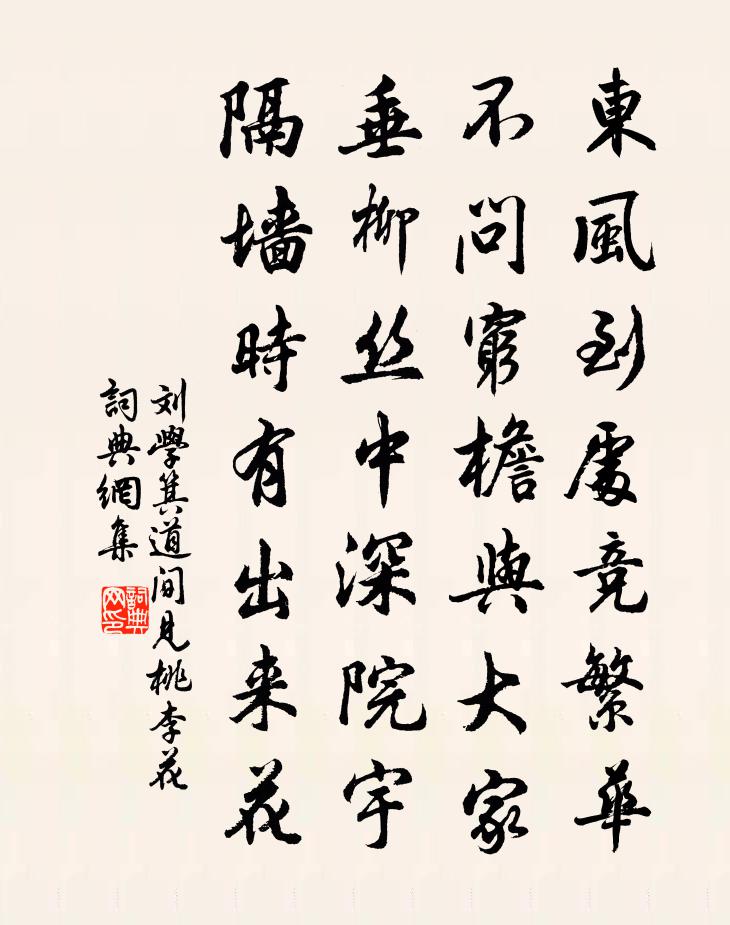 東風到處竞繁華
不問窮檐與大家
垂柳丝中深院宇
隔墙時有出来花
刘學箕道间見桃李花
詞典網集
詞典
网印